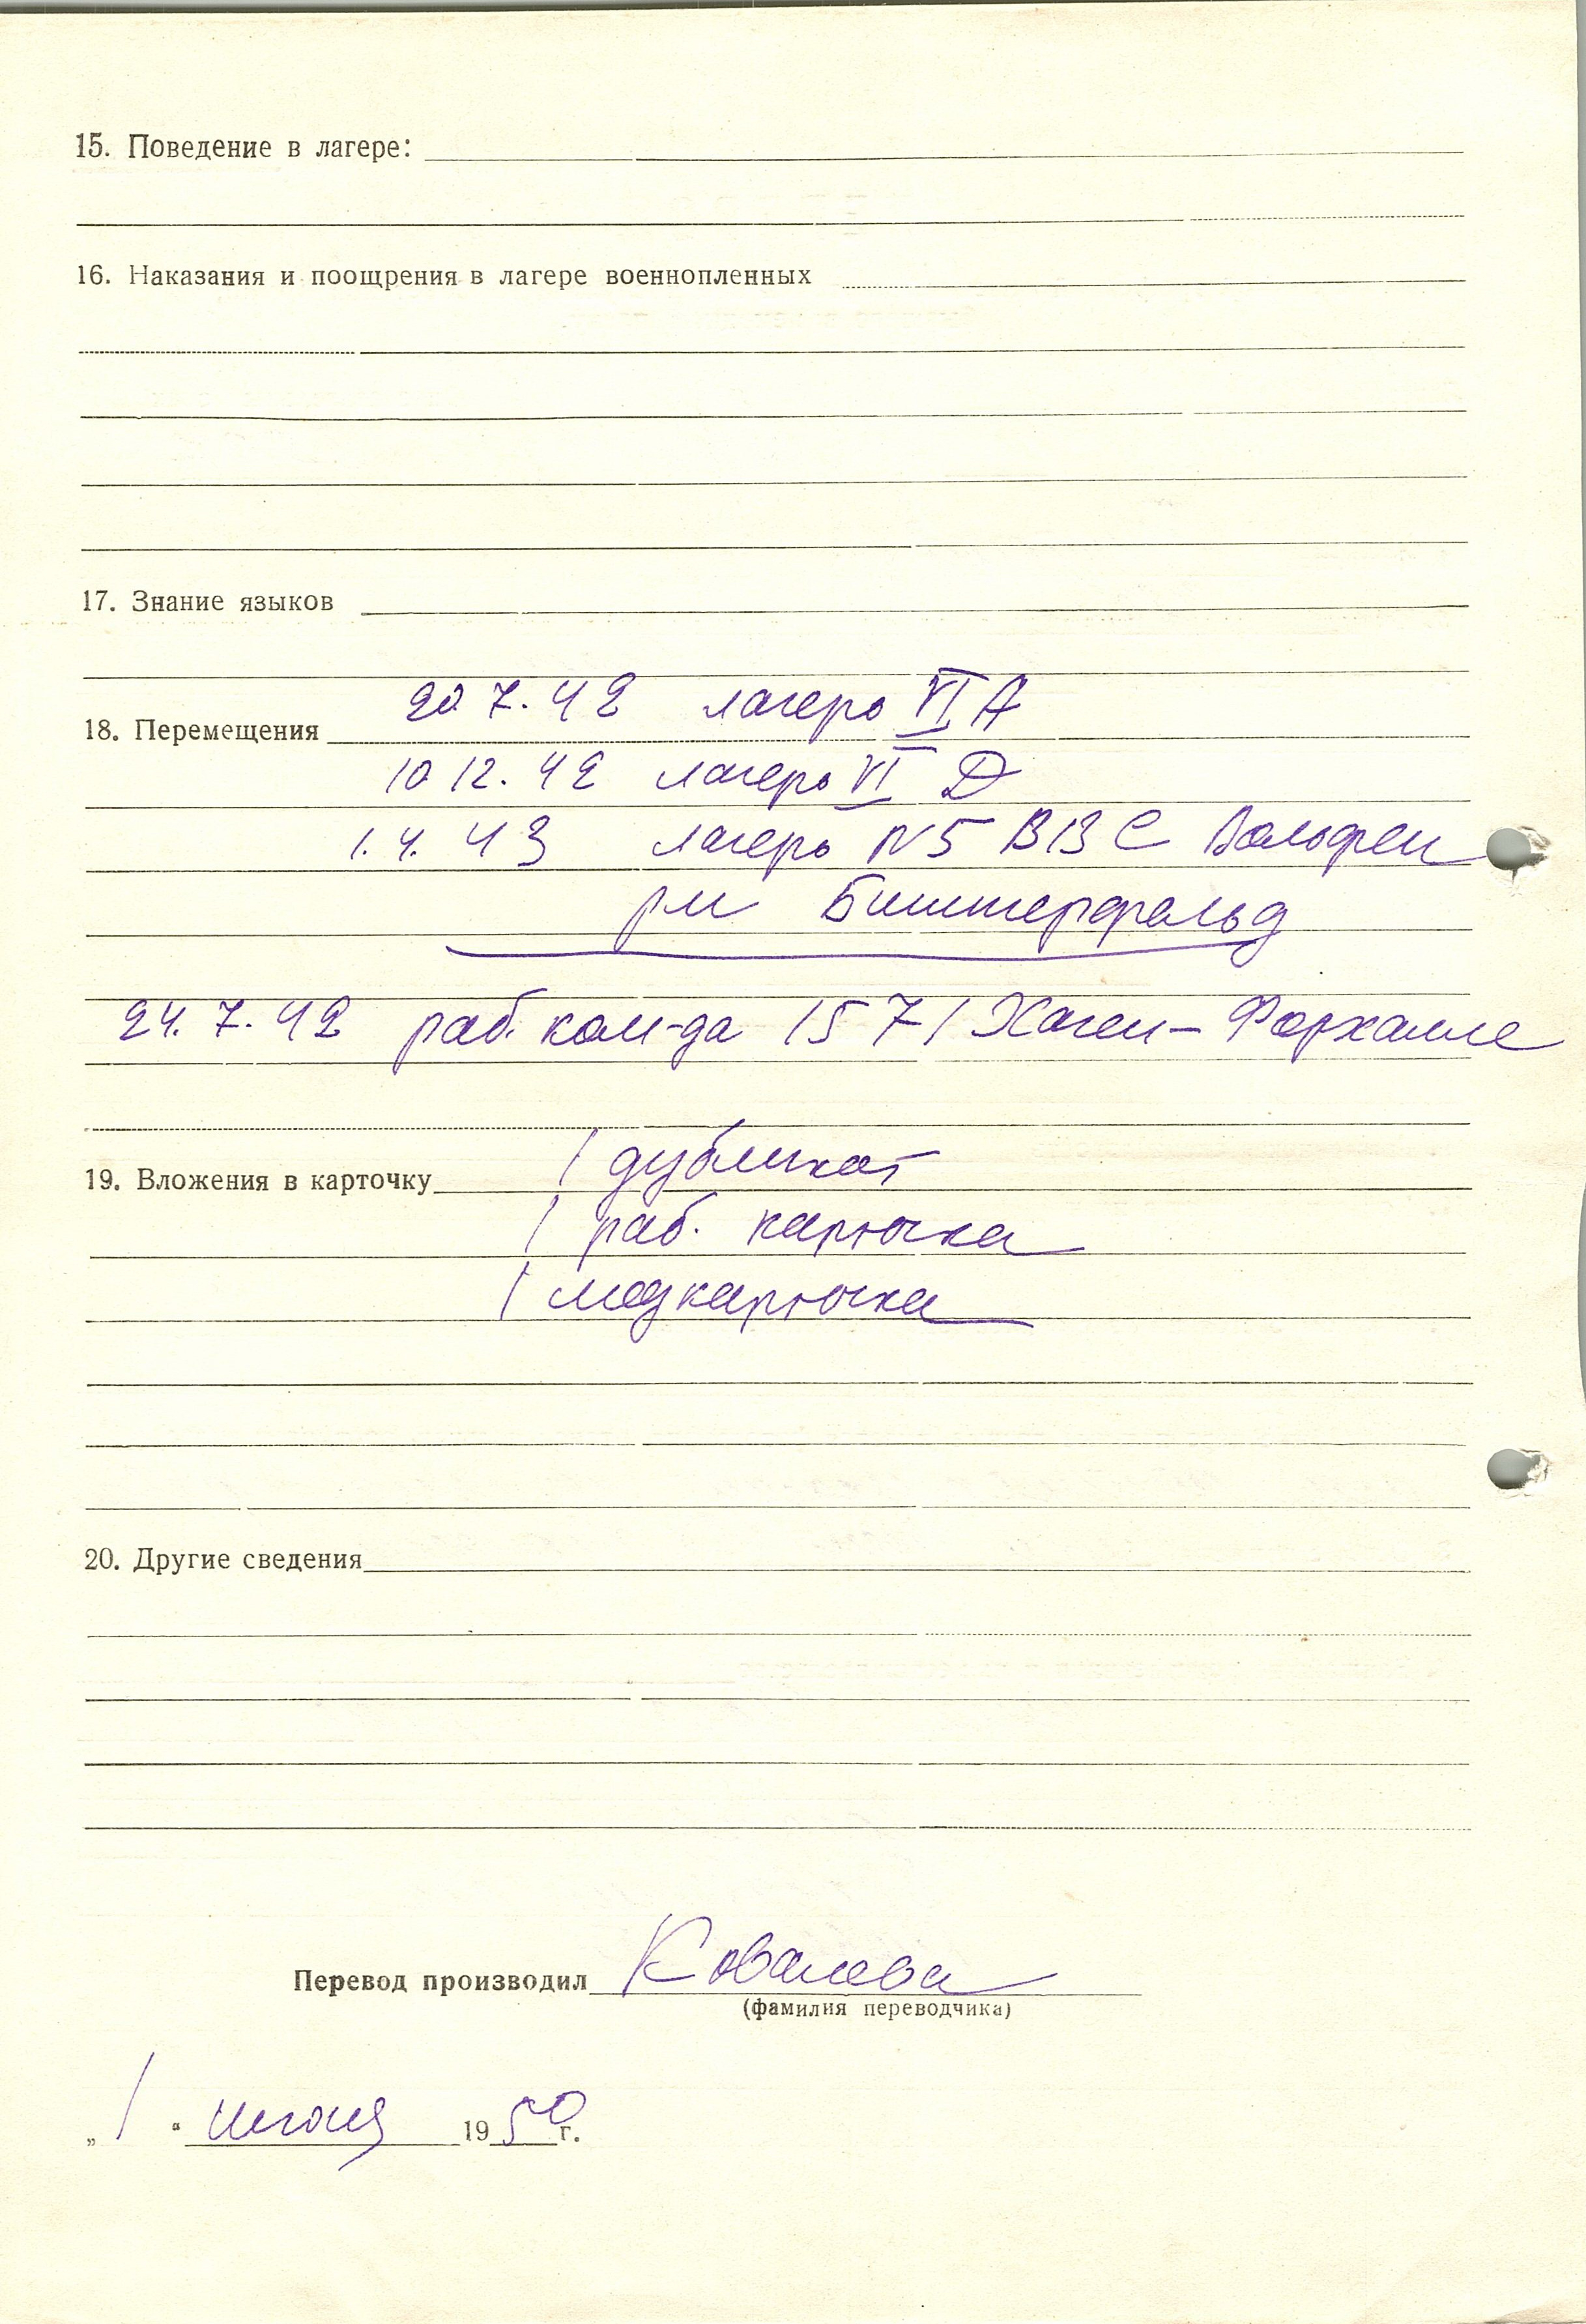 15. Поведение в лагере:
16. Наказания и поощрения в лагере военнопленных
17. Знание языков
20. 7. 42 лагерь VI А
18. Перемещения
10 12. 42 лагерь VI Д
1. 4. 43 лагерь N5 ВВС Вольфен
Биттерфельд
24. 7. 42 раб. ком-да 1571 Хаген-Форхалле
1 дубликат
19. Вложения в карточку
1 раб. карточка
1 медкарточка
20. Другие сведения
Перевод производил Ковалева
(фамилия переводчика)
„1“ 1950 г.